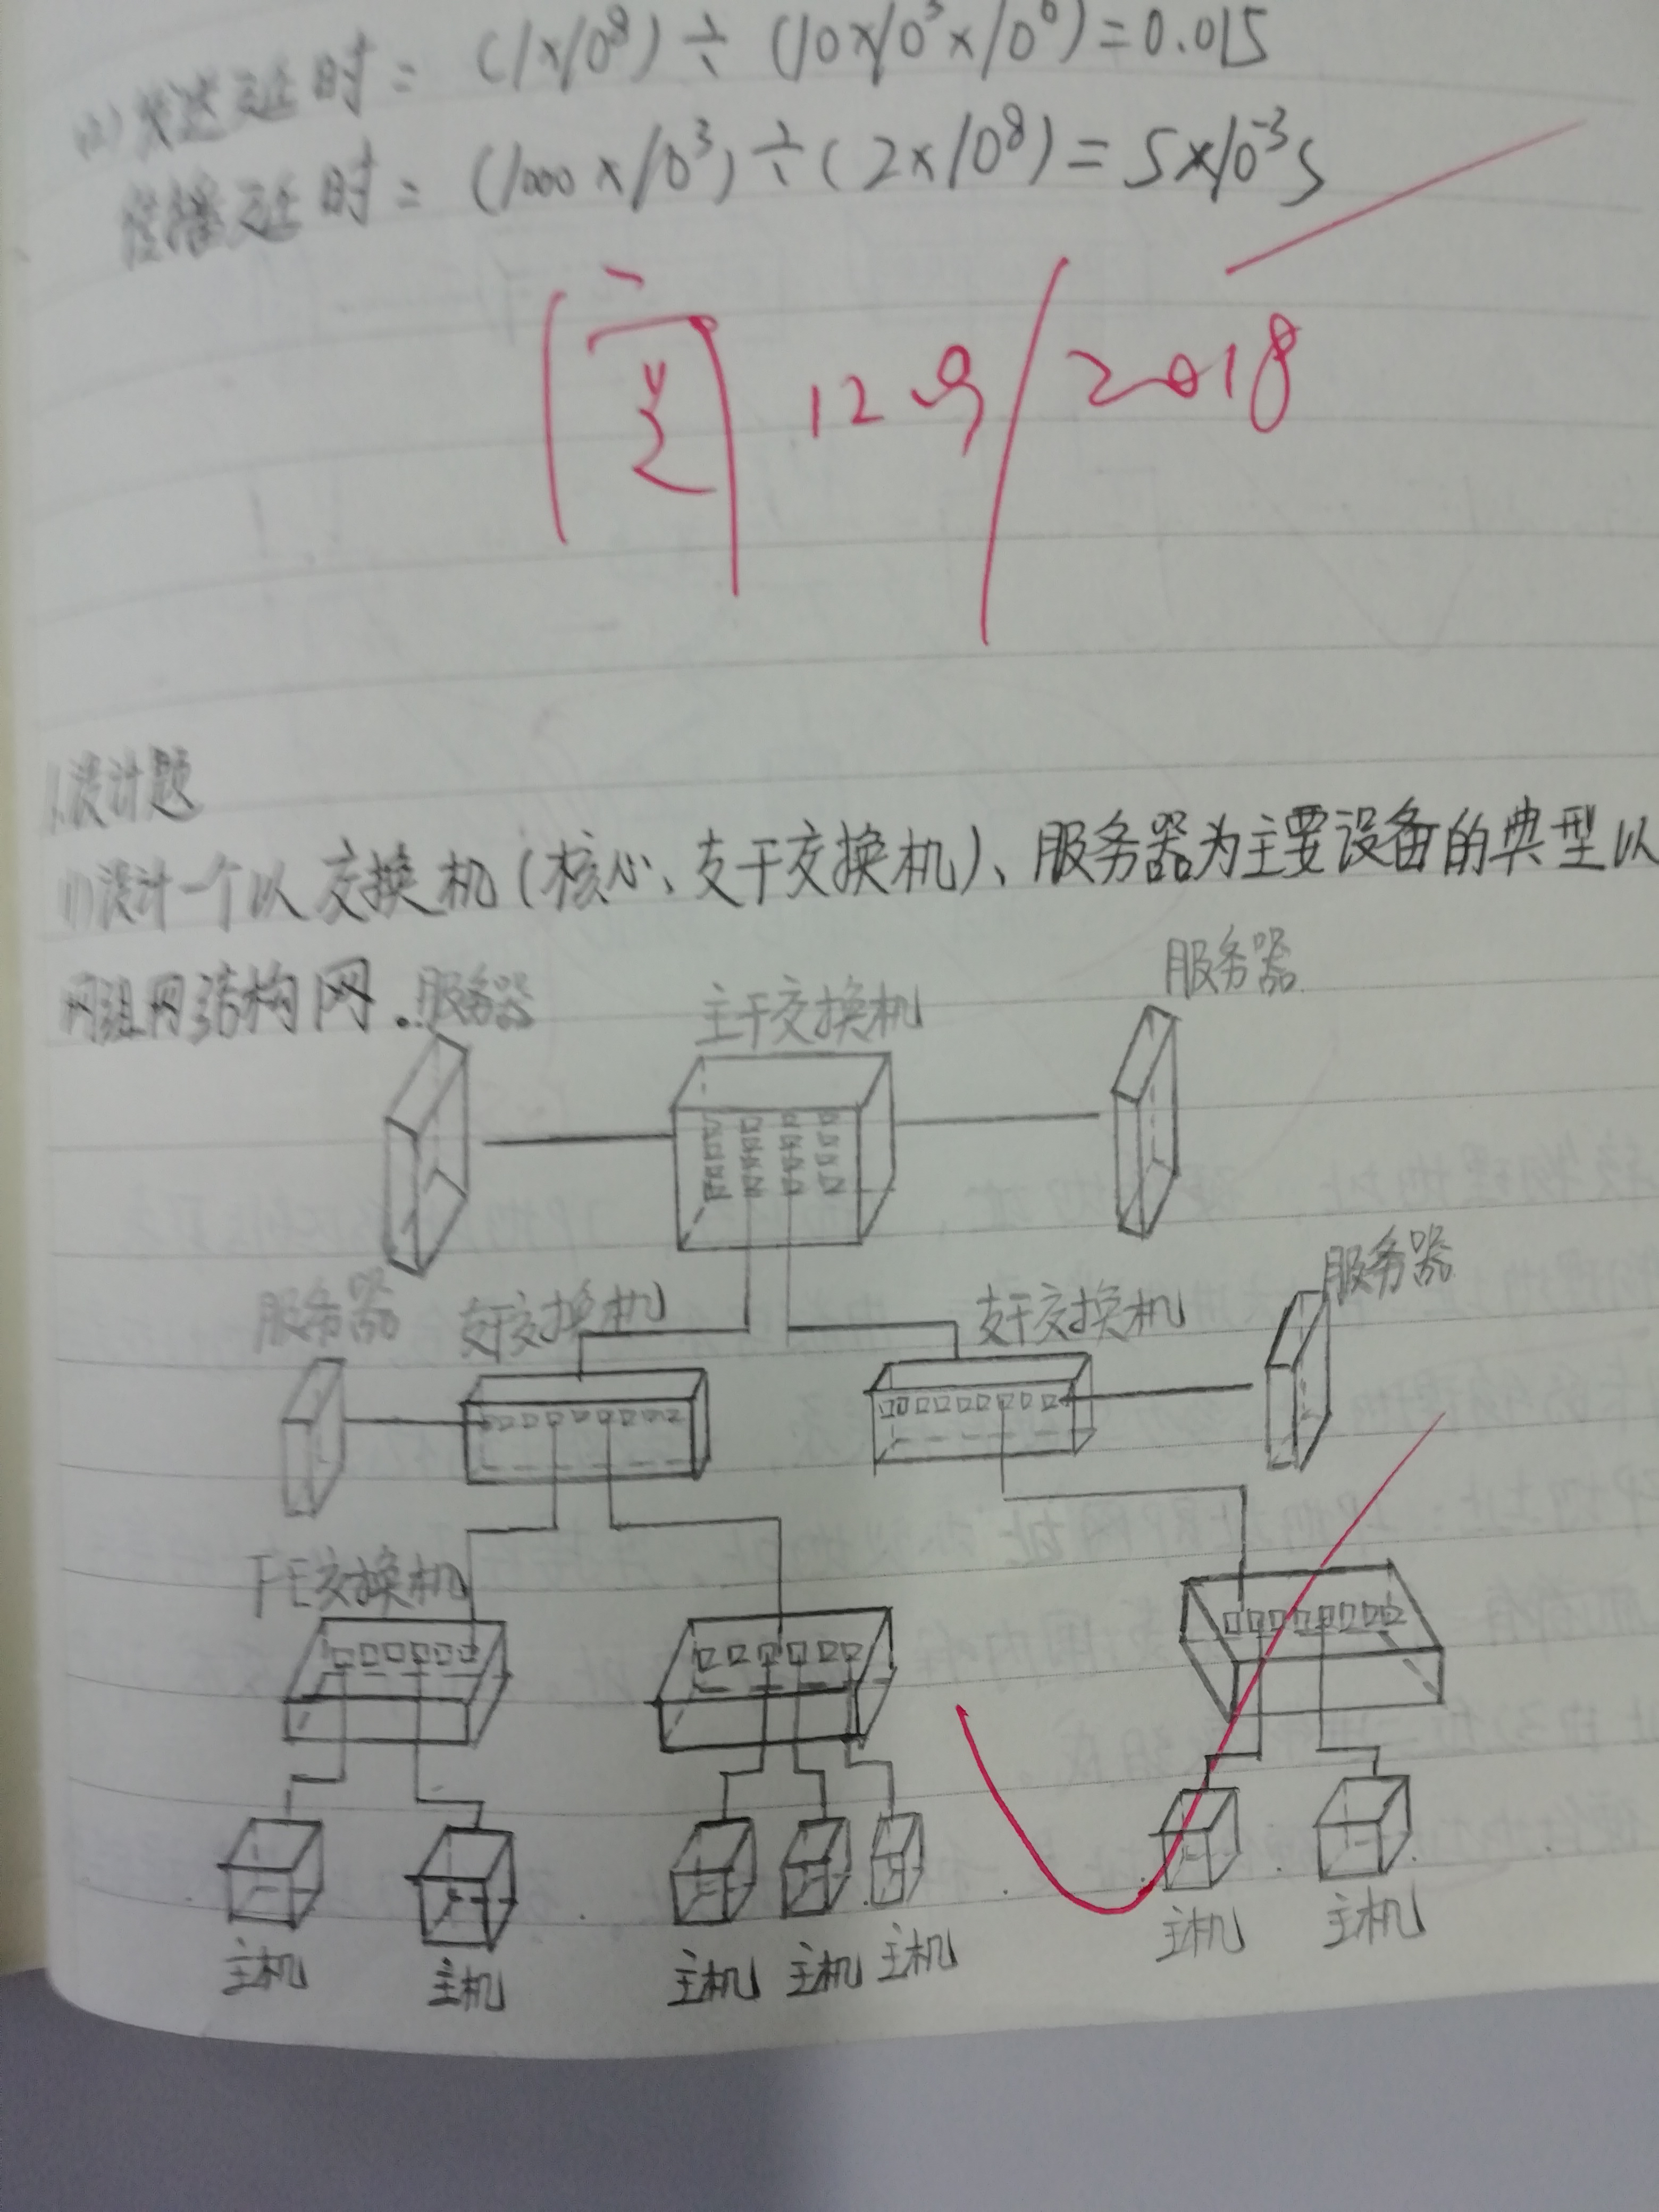 (2)发送延时 = (1×10⁸) ÷ (10×10³×10⁶) = 0.01S
传播延时 = (1000×10³) ÷ (2×10⁸) = 5×10⁻³S
12.9/2018
1.设计题
(1)设计一个以交换机(核心、支干交换机)、服务器为主要设备的典型以
网组网结构网.
服务器 主干交换机 服务器
服务器 支干交换机 支干交换机 服务器
FE交换机
主机 主机 主机 主机 主机 主机 主机